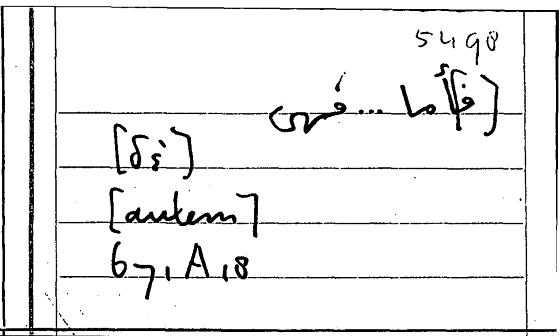 5498
[فأما ... فهى
[δέ]
[autem]
67, A, 8